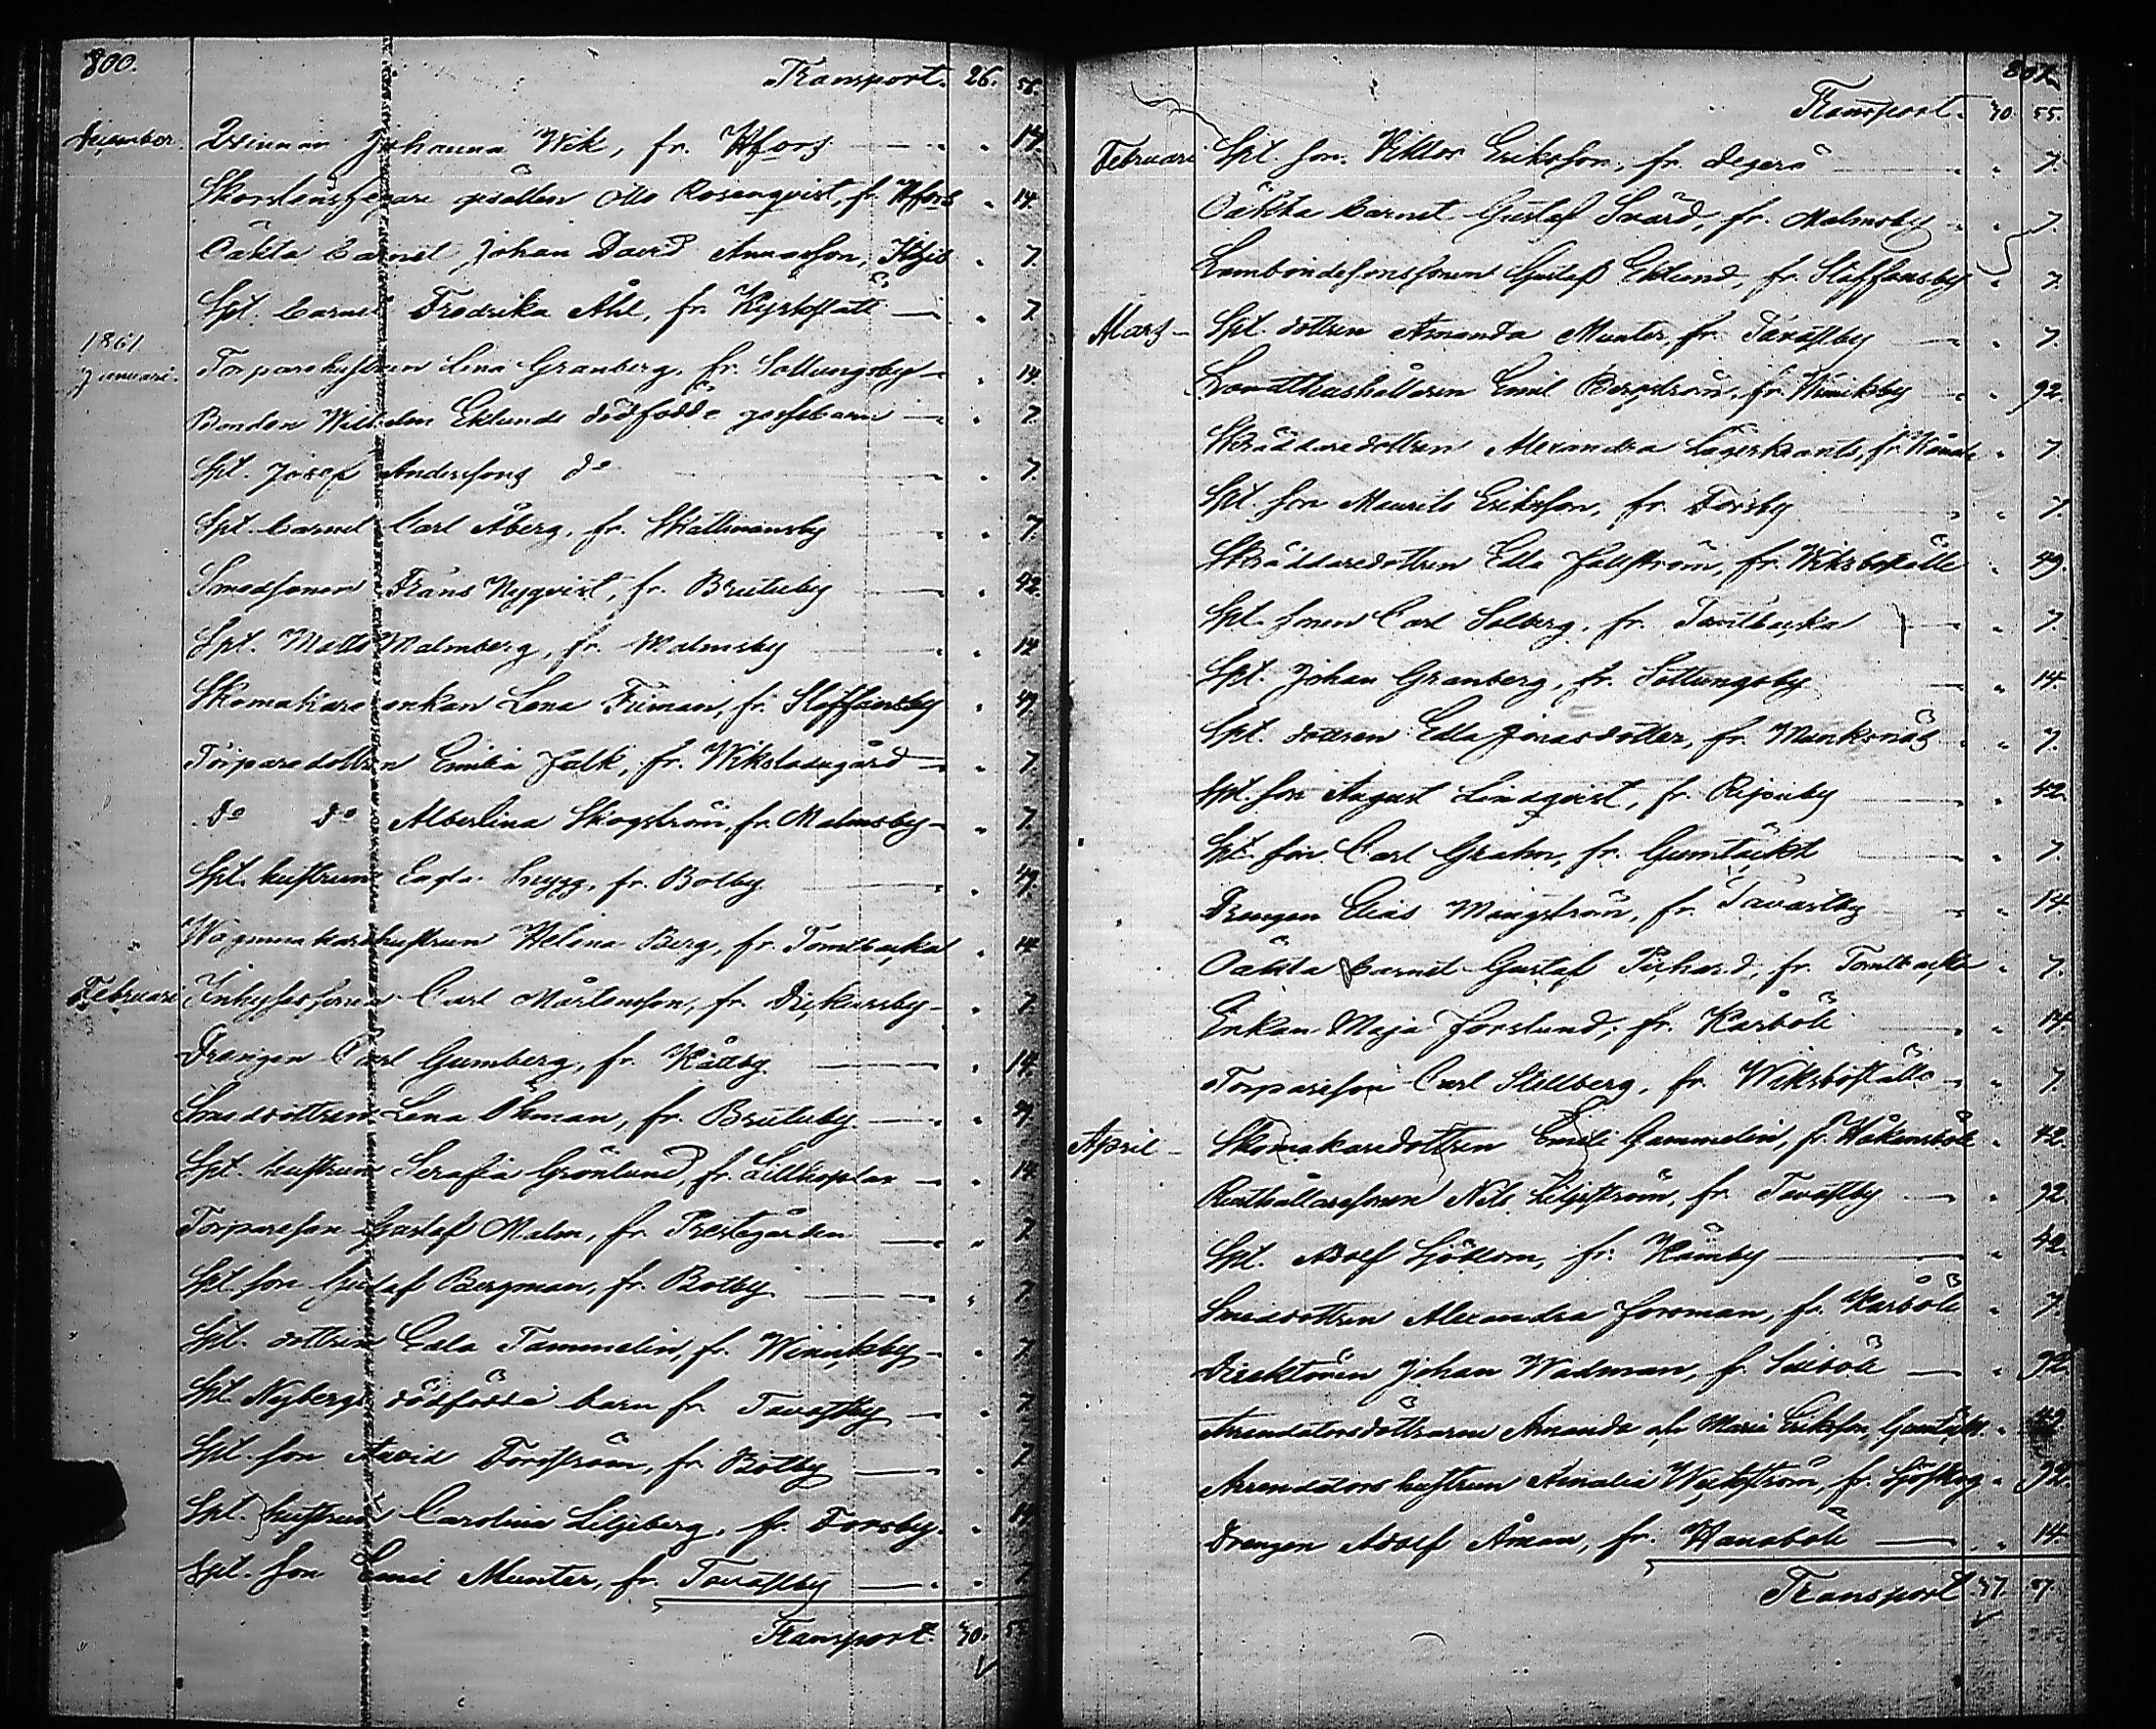 800.
Transport. 26. 56.
December. Qvinnan Johanna Wik, fr. Hfors 14.
Skorstensfegare gesällen Otto Rosenqvist, fr. Hfors 14.
Oäkta barnet Johan David Annasson, 7.
Spt. barnet Fredrika Åhl, fr. Kyrkslätt 7.
1861
Januari. Torparehustrun Lena Granberg, fr. Sottungsby 14.
Bonden Wilhelm Eklunds dödfödde gossebarn 7.
Spt. Josef Anderssons do 7.
Spt. barnet Carl Åberg, fr. Skattmansby 7.
Smedsonen Frans Nyqvist, fr. Brutuby 42.
Spt. Matts Malmberg, fr. Malmsby 14
Skomakare enkan Lena Friman, fr. Staffansby
Torparedottren Emilia Falk, fr. Wiksladugård 7.
do do Albertina Skogström, fr. Malmsby 7.
Spt. hustrun fr. Botby 49.
Wagnmakarehustrun Helena Berg, fr. Tomtbacka 14.
Februari Inhysessonen Carl Mårtensson, fr. Dickursby 7.
Drängen Carl Gumberg, fr. Kåttby 14.
Smeddottren Lena Öhman, fr. Brutuby 49.
Spt. hustrun Serafia Grönlund, fr. Lillhoplax 14
Torpareson Gustaf Malm, fr. Prestgården 7
Spt. son Gustaf Bergman, fr. Botby 7
Spt. dottren Edla Tammelin, fr. Winikby 7
Spt. Nybergs dödfödda barn fr. Tavastby 7
Spt. son David Fordström, fr. Botby 7
Spt. hustrun Carolina Liljeberg, fr. Forsby. 14
Spt. son Emil Munter, fr. Tavastby 7
Transport. 30. 55
801.
Transport. 30. 55.
Februari Spt. son Viktor Eriksson, fr. Degerö 7.
Oäkta barnet Gustaf Svärd, fr. Malmsby 7.
Lambondesonssonen Gustaf Eklund, fr. Staffansby 7.
Mars Spt. dottren Amanda Munter, fr. Tavastby 7.
Emil Bergström, fr. Winiksby 92.
Skräddaredottren Alexandra Lagerkrants, fr. 7.
Spt. son Maurits Eriksson, fr. Forsby 7.
Skräddaredottren Edla Fallström, fr. Wiksboställe 49.
Spt. sonen Carl Solberg, fr. Tomtbacka 7.
Spt. Johan Granberg, fr. Sottungsby 14.
Spt. dottren Edla Jonasdotter, fr. Munksnäs 7.
Spt. son August Lindqvist, fr. Ripuby 42.
Spt. son Carl Grahn, fr. Gumtäkt 7.
Drängen Elias Mängström, fr. Tavastby 14.
Oäkta barnet Gustaf Pichard, fr. Tomtbacka 7.
Enkan Maja Forslund, fr. Kårböle 14
Torpareson Carl Stellberg, fr. Wiksboställe 7.
April Skomakaredottren Emili Gammelin, fr. Håkansböle 42.
Rusthållaresonen Nils Liljeström, fr. Tavastby 92.
Spt. Adolf Sjöblom, fr. Hämby 42.
Smeddottren Alexandra Forsman, fr. Kårböle 7.
Direktören Johan Wadman, f. 92
Arendatorsdöttrarne Amanda och Maria Eriksson, Gumtäkt.
Arrendators hustrun Amalia Weckström, fr. Sjöskog 92.
Drängen Adolf Åman, fr. Hanaböle 14.
Transport 37. 57.